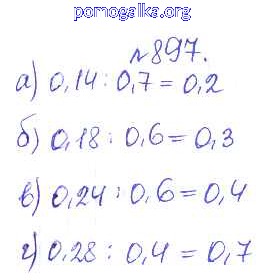 pomogalka.org
№897.
а) 0,14 : 0,7 = 0,2
б) 0,18 : 0,6 = 0,3
в) 0,24 : 0,6 = 0,4
г) 0,28 : 0,4 = 0,7